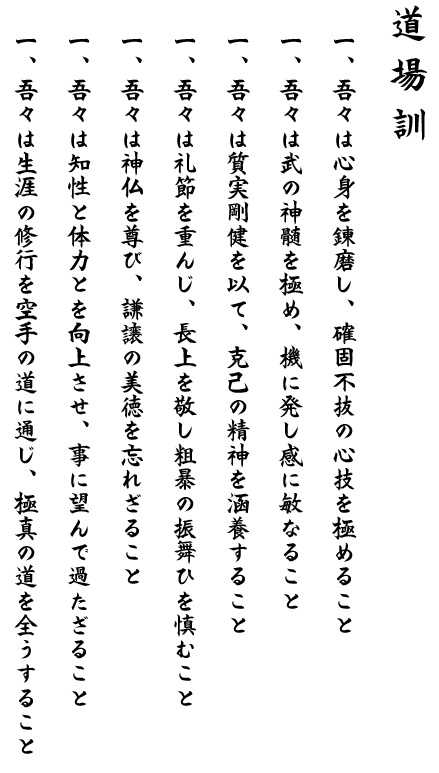 道場訓
一、吾々は心身を錬磨し、確固不抜の心技を極めること
一、吾々は武の神髄を極め、機に発し感に敏なること
一、吾々は質実剛健を以て、克己の精神を涵養すること
一、吾々は礼節を重んじ、長上を敬し粗暴の振舞ひを慎むこと
一、吾々は神仏を尊び、謙譲の美徳を忘れざること
一、吾々は知性と体力とを向上させ、事に望んで過たざること
一、吾々は生涯の修行を空手の道に通じ、極真の道を全うすること